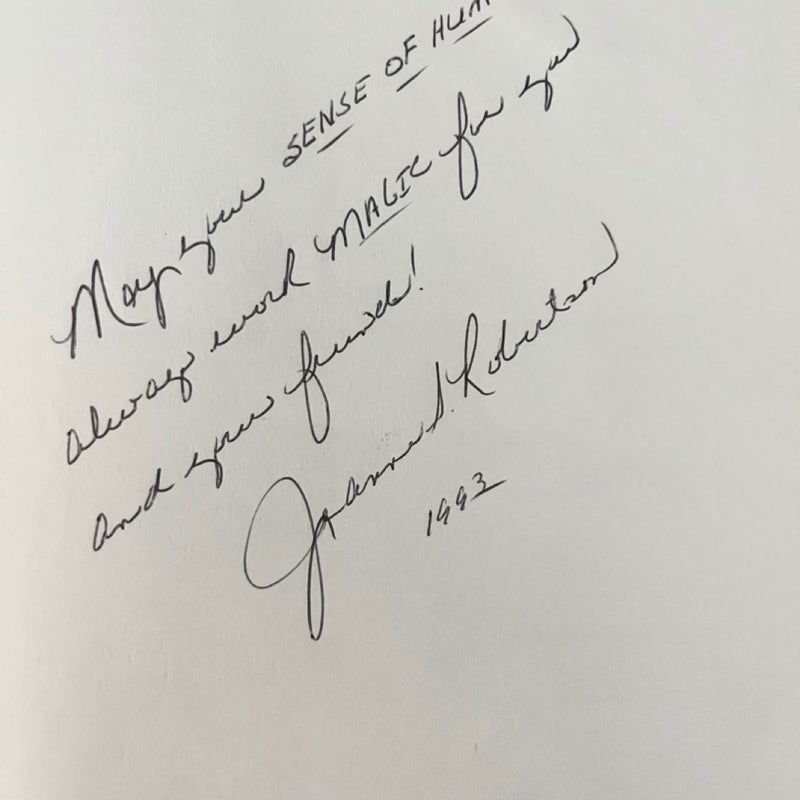 May your SENSE OF HUM
always work MAGIC for you
and your friends!
Joanne S. Robertson
1993